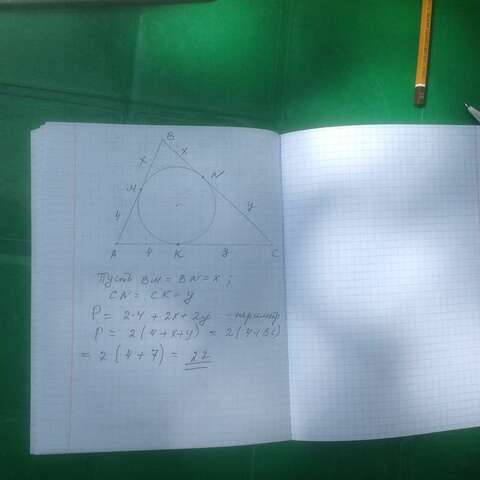 B
x x
M N
4 y
A 4 K y C
Пусть BM = BN = x ;
CN = CK = y
P = 2·4 + 2x + 2y - периметр
P = 2(4+x+y) = 2(4+BC)
= 2(4+7) = 22